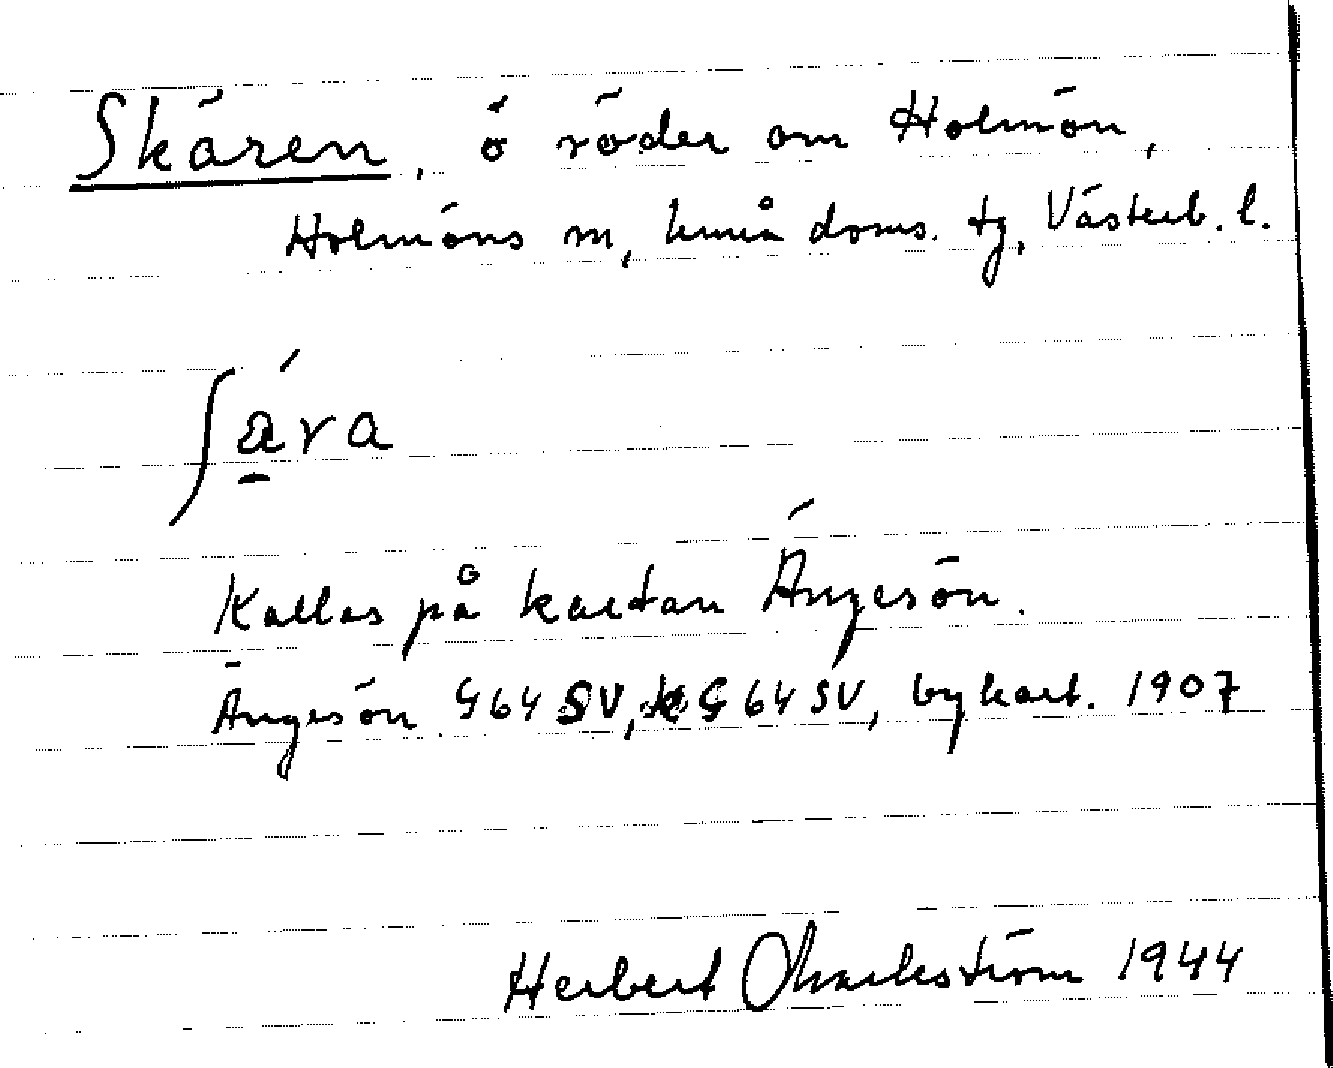 Skären, ö söder om Holmön,
Holmöns sn, Umeå doms. tg, Västerb. l.
ʃä́ra
Kallas på kartan Ängesön.
Ängesön G64SV, G64SV, bykart. 1907
Herbert 1944